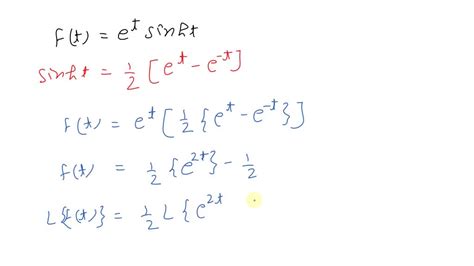 f(t) = e^t sinht
sinht = 1/2 [e^t - e^-t]
f(t) = e^t [1/2 {e^t - e^-t}]
f(t) = 1/2 {e^2t} - 1/2
L{f(t)} = 1/2 L{e^2t